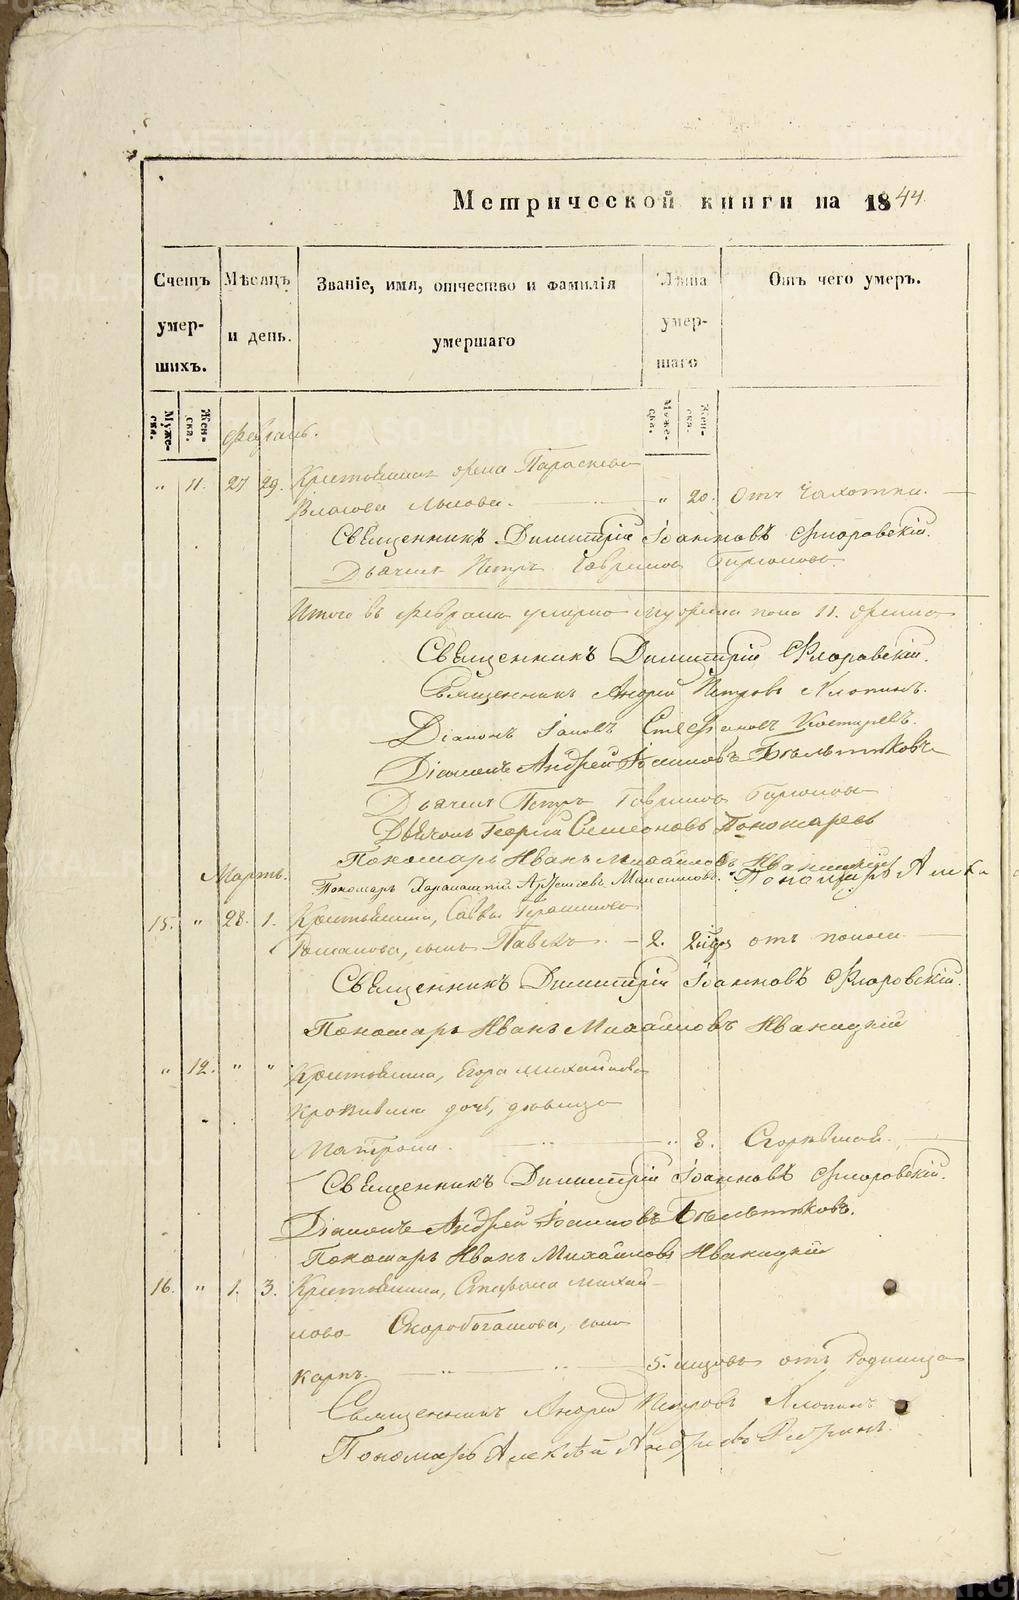 Метрической книги на 1844.
Счетъ умер-шихъ.
Мѣсяцъ и день.
Званіе, имя, отчество и фамилія умершаго
Лѣта умер-шаго
Отъ чего умеръ.
Муже-ска. Жен-ска.
Муже-ска. Жен-ска.
Февраль.
" 11. 27 29. Крестьянина жена Параскева
Власова Лысова. " 20. Отъ чахотки.
Священникъ Димитрій Іоанновъ Флоровскій.
Дьячекъ Петръ Гавриловъ
Итого въ Февралѣ умерло мужеска пола 11. женска
Священникъ Димитрій Флоровскій.
Священникъ Андрей Петровъ Хлопинъ.
Діаконъ Іаковъ Стефановъ Костаревъ.
Діаконъ Андрей Іоанновъ Бѣльтюковъ
Дьячекъ Петръ Гавриловъ
Дьячокъ Георгій Симеоновъ Пономаревъ
Пономарь Иванъ Михайловъ Иваницкій
Мартъ.
Пономарь Харалампій Максимовъ. Пономарь Алек
15. " 28. 1. Крестьянина, Саввы Герасимова
Романова, сынъ Павелъ. 2. отъ поноса
Священникъ Димитрій Іоанновъ Флоровскій.
Пономарь Иванъ Михайловъ Иваницкій
" 12. " " Крестьянина, Егора Михайлова
дочь, дѣвица
Матрона. " 8. Сгорѣвшая.
Священникъ Димитрій Іоанновъ Флоровскій.
Діаконъ Андрей Іоанновъ Бѣльтюковъ.
Пономарь Иванъ Михайловъ Иваницкій
16. " 1. 3. Крестьянина, Стефана Михай-
лова Скоробогатова, сынъ
Карпъ. 5. отъ родимца
Священникъ Андрей Петровъ Хлопинъ
Пономарь Алексѣй Андреевъ